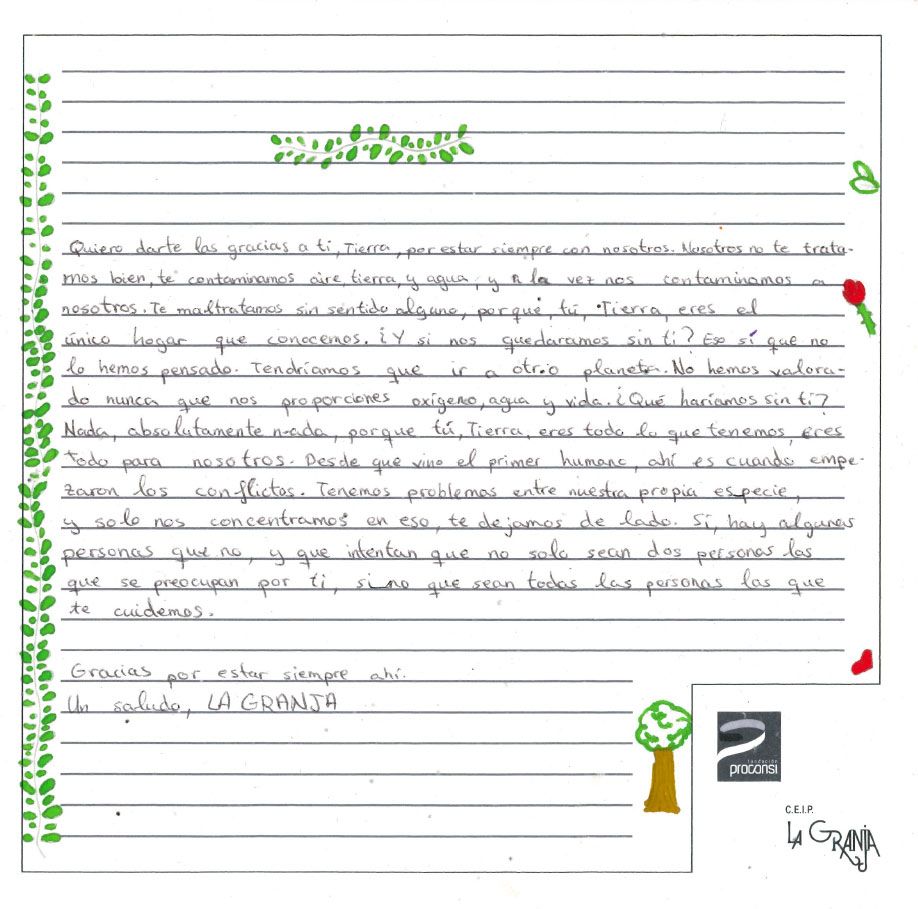 Quiero darte las gracias a ti, Tierra, por estar siempre con nosotros. Nosotros no te trata-
mos bien, te contaminamos aire, tierra, y agua, y a la vez nos contaminamos a
nosotros. Te maltratamos sin sentido alguno, porque, tú, Tierra, eres el
único hogar que conocemos. ¿Y si nos quedaramos sin ti? Eso sí que no
lo hemos pensado. Tendríamos que ir a otro planeta. No hemos valora-
do nunca que nos proporciones oxígeno, agua y vida. ¿Qué haríamos sin ti?
Nada, absolutamente nada, porque tú, Tierra, eres todo lo que tenemos, eres
todo para nosotros. Desde que vino el primer humano, ahí es cuando empe-
zaron los conflictos. Tenemos problemas entre nuestra propia especie,
y solo nos concentramos en eso, te dejamos de lado. Sí, hay algunas
personas que no, y que intentan que no solo sean dos personas las
que se preocupan por ti, sino que sean todas las personas las que
te cuidemos.
Gracias por estar siempre ahí.
Un saludo, LA GRANJA
fundación
proconsi
C.E.I.P.
LA GRANJA